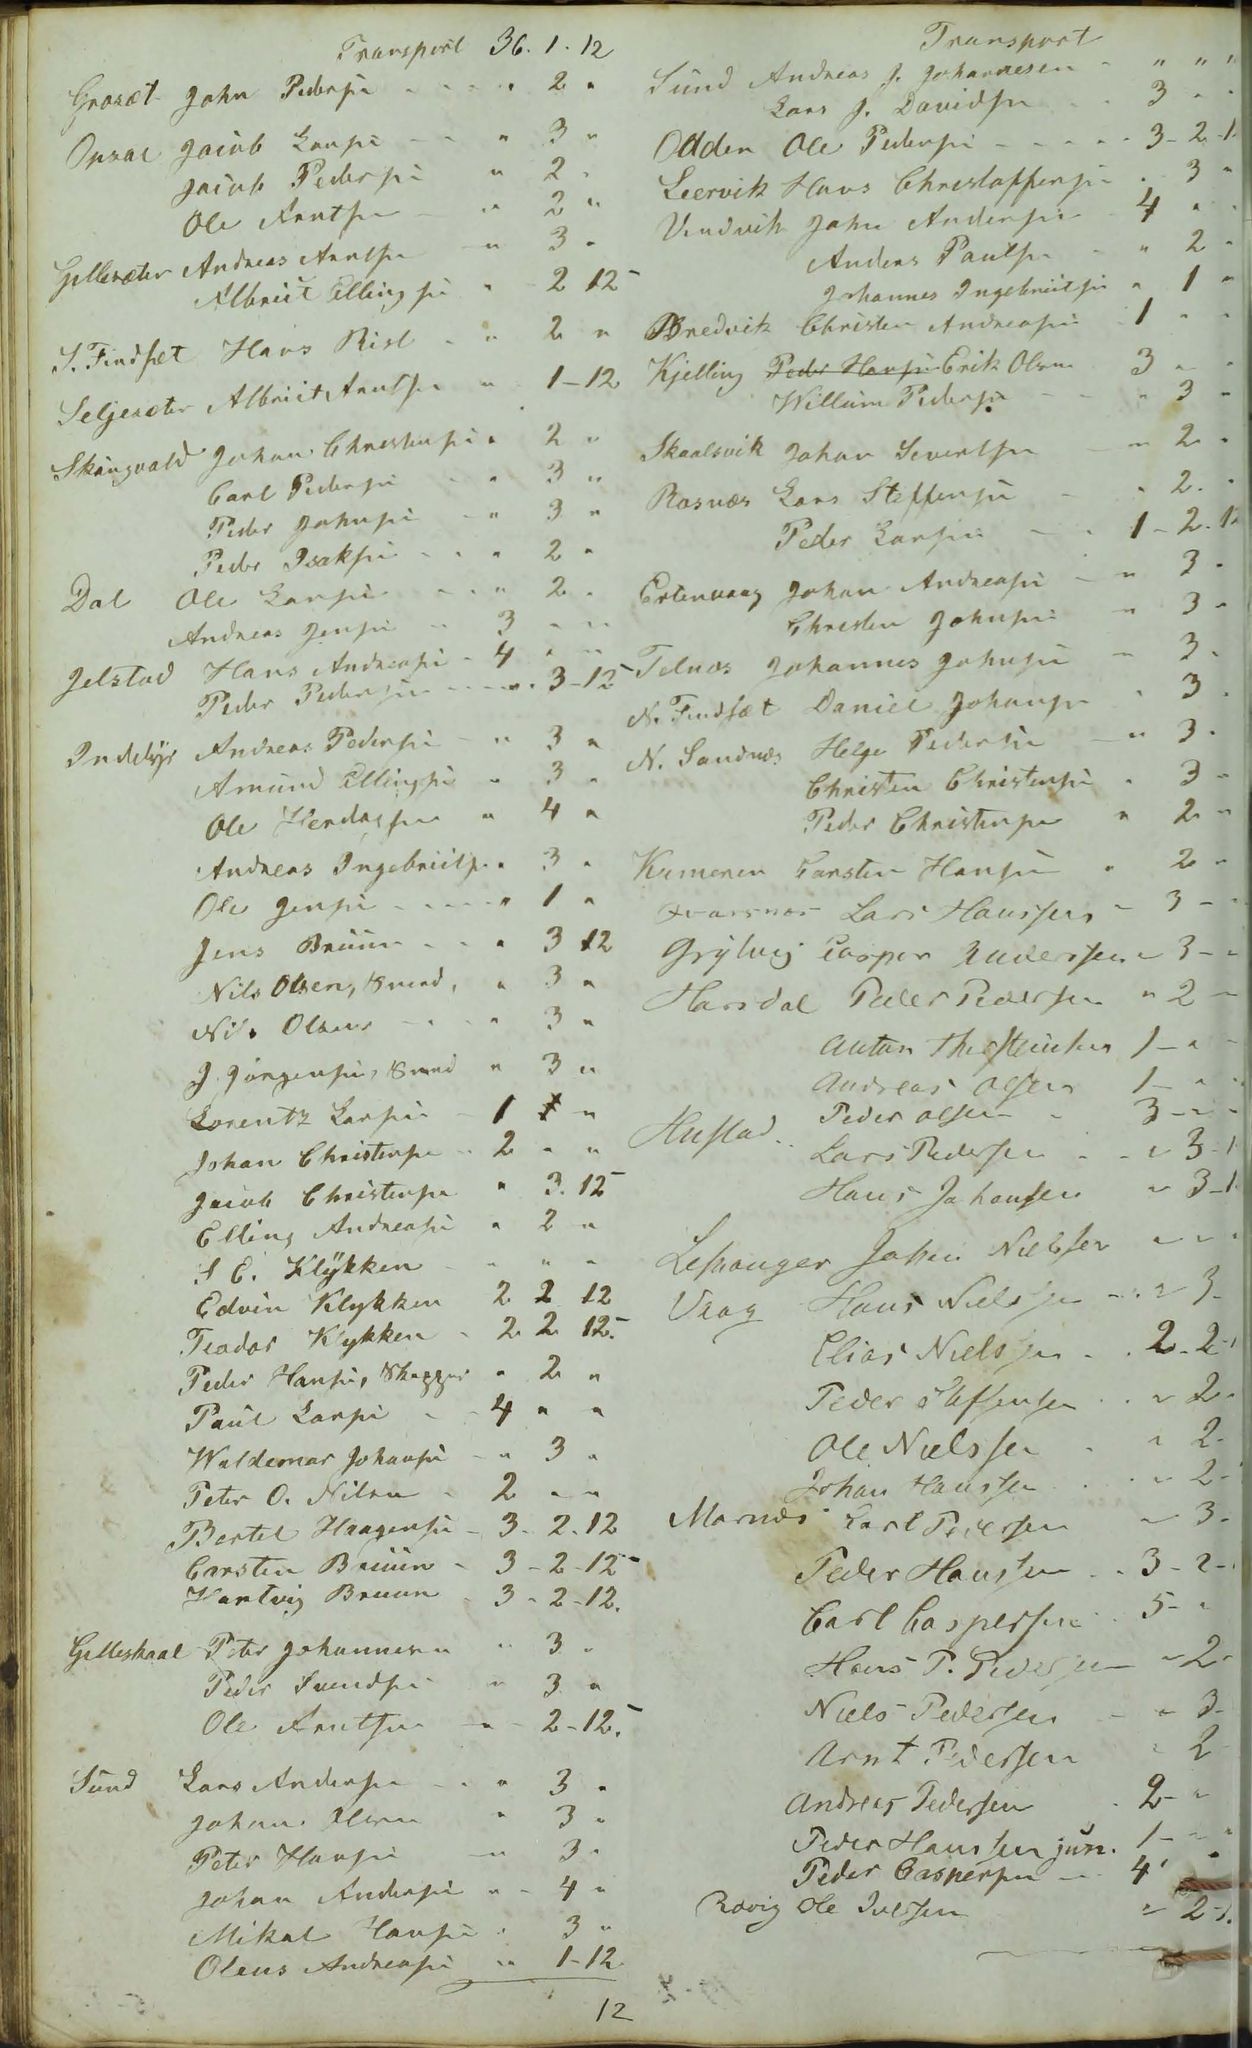 Transport 36. 1. 12
Grosæt John Pedersen " 2 "
Opsal Jacob Larsen " 3 "
Jacob Pedersen " 2 "
Ole Arntsen " 2 "
Gillesæter Andreas Arntsen " 3 "
Albriit Ellingsen " 2 12
S. Findsæt Hans Rist " 2 "
Seljesæter Albriit Arntsen " 1-12
Skaugvald Johan Christensen " 2 "
Carl Pedersen " 3 "
Peder Johnsen " 3 "
Peder Isaksen " 2 "
Dal Ole Larsen " 2 "
Andreas Jensen 3 " "
Jelstad Hans Andreasen 4 " "
Peder Pedersen " 3-12
Inddyr Andreas Pedersen " 3 "
Amund Ellingsen " 3 "
Ole Herdagsen " 4 "
Andreas Ingebriitsen " 3 "
Ole Jensen " 1 "
Jens Bruun " 3 12
Nils Olsen, Smed, " 3 "
Nils Olsen " 3 "
J. Jörgensen, Smed " 3 "
Lorentz Larsen 1 "
Johan Christensen 2 " "
Jacob Christensen " 3. 12
Elling Andreasen " 2 "
S E. Klÿkken " " "
Edvin Klykken 2 2 12
Teodor Klykken 2. 2 12.
Peder Hansen, Skegger " 2 "
Paul Larsen 4 " "
Waldemar Johansen " 3 "
Peter O. Nilsen 2 " "
Bertel Haagensen 3. 2. 12
Carsten Bruun 3-2-12
Hartvig Bruun 3-2-12.
Gilleskaal Peter Johannesen " 3 "
Peder Svendsen " 3 "
Ole Arntsen " 2-12.
Sund Lars Andersen " 3 "
Johan Olsen " 3 "
Peter Hansen " 3 "
Johan Andersen " 4 "
Mikal Hansen " 3 "
Oleus Andreasen " 1-12
12
Transport
Sund Andreas J. Johannesen " " "
Lars J. Davidsen 3 " "
Odden Ole Pedersen 3-2-1
Leervik Hans Christoffersen . 3 "
Vindvik John Andersen 4 " "
Anders Paulsen " 2 "
Johannes Ingebriitsen " 1 "
Bredvik Christen Andreasen 1 " "
Kjelling Peder Hansen Erik Olsen 3 " "
Willum Pedersen " 3 "
Skaalsvik Johan Sivertsen " 2 "
Rosnæs Lars Steffensen " 2. "
Peder Larsen 1-2. 12
Ertenvaag Johan Andreasen " 3 "
Christen Johnsen " 3 "
Telnæs Johannes Johnsen " 3 "
N. Findsæt Daniel Johansen " 3 "
N. Sandnæs Helge Pedersen " 3 "
Christen Christensen " 3 "
Peder Christensen " 2 "
Kumeren Carsten Hansen " 2 "
Lars Hanssen " 3 - "
Grÿtvig Casper Anderssen " 3 - "
Harsdal Peder Pedersen " 2 -
Anton Thorsteinsen 1 - " "
Andreas Olsen 1 - " "
Hustad.. Peder Olsen 3 - " "
Lars Pedersen " 3-1
Hans Johansen " 3-1
Leshauger Johan Nielssen " " "
Vaag Hans Nielssen " 3-
Elias Nielssen 2-2-1
Peder Staffensen " 2-
Ole Nielssen " 2-
Johan Hanssen " 2-
Marnæs Carl Pedersen " 3-
Peder Hanssen 3-2-
Carl Caspersen 5- "
Hans P. Pedersen " 2-
Niels Pedersen " 3-
Arnt Pedersen " 2
Andreas Pedersen 2- "
Peder Hanssen jun. 1- " "
Peder Caspersen 4 "
Rævig Ole Iversen " 2-1.